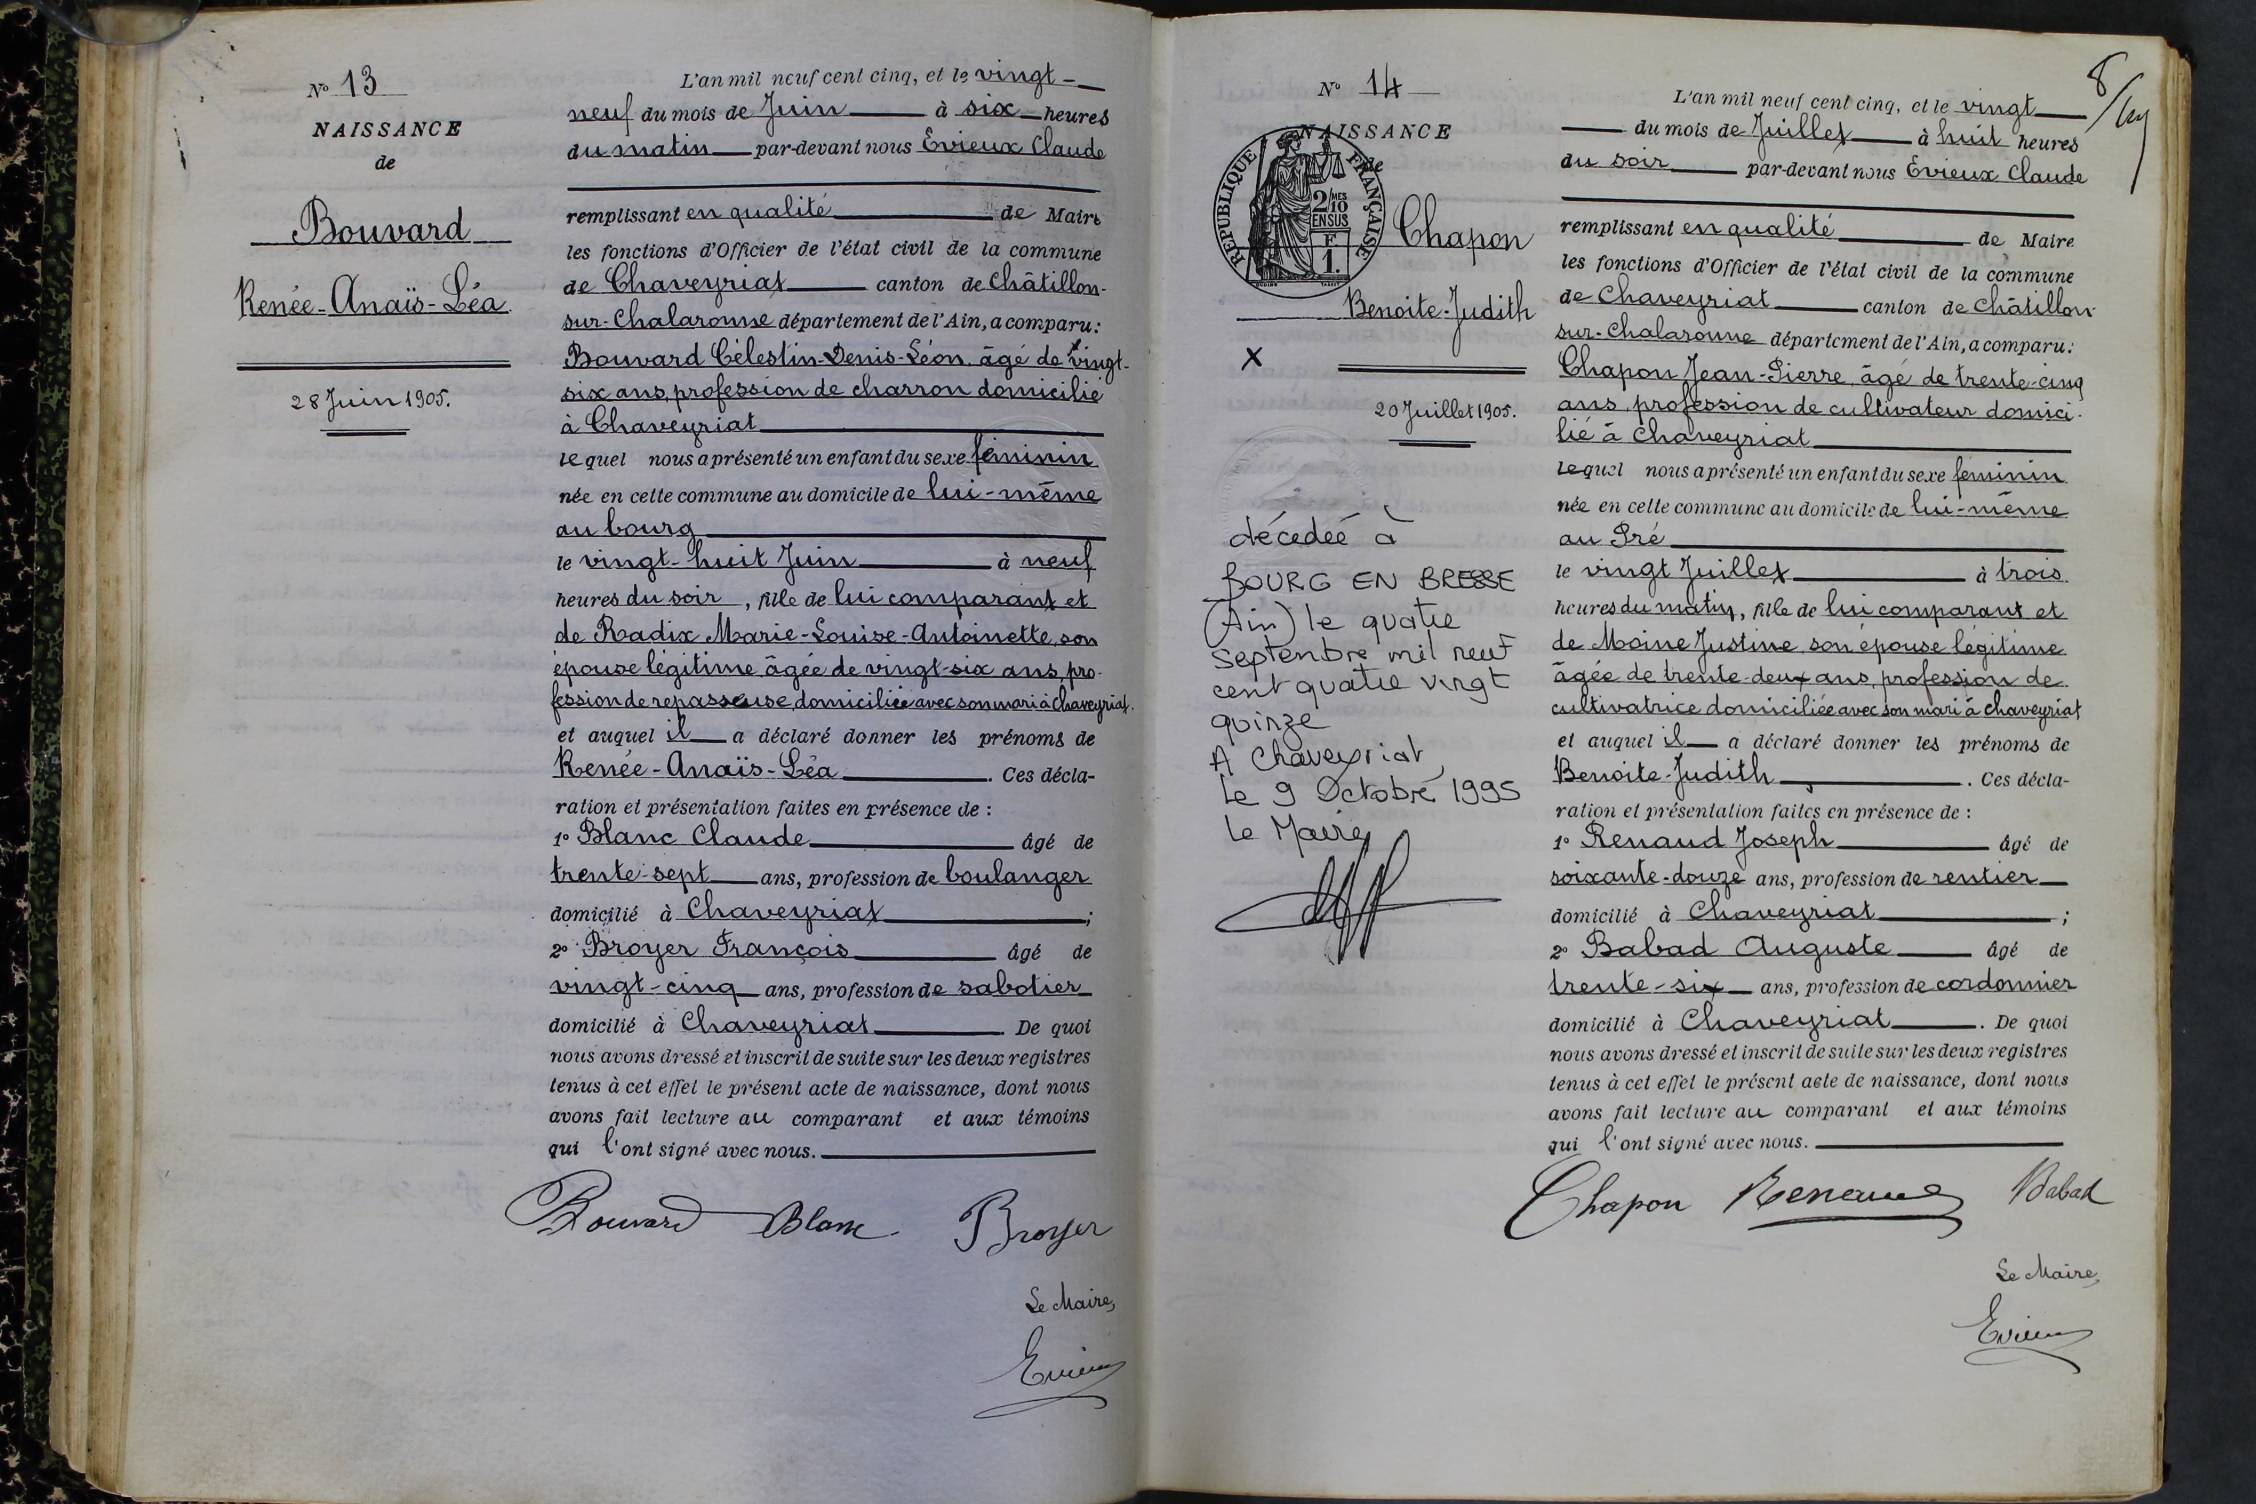 N° 13
NAISSANCE
de
Bouvard
Renée-Anaïs-Léa
28 Juin 1905.
L'an mil neuf cent cinq, et le vingt-
neuf du mois de Juin à six heures
du matin par-devant nous Evieux Claude
remplissant en qualité de Maire
les fonctions d'Officier de l'état civil de la commune
de Chaveyriat canton de Châtillon-
sur-Chalaronne département de l'Ain, a comparu:
Bouvard Célestin-Denis-Léon, âgé de vingt-
six ans, profession de charron domicilié
à Chaveyriat
lequel nous a présenté un enfant du sexe féminin
née en cette commune au domicile de lui-même
au bourg
le vingt-huit Juin à neuf
heures du soir, fille de lui comparant et
de Radix Marie-Louise-Antoinette, son
épouse légitime âgée de vingt-six ans, pro-
fession de repasseuse, domiciliée avec son mari à Chaveyriat.
et auquel il a déclaré donner les prénoms de
Renée-Anaïs-Léa. Ces décla-
ration et présentation faites en présence de :
1° Blanc Claude âgé de
trente-sept ans, profession de boulanger
domicilié à Chaveyriat ;
2° Broyer François âgé de
vingt-cinq ans, profession de sabotier
domicilié à Chaveyriat. De quoi
nous avons dressé et inscrit de suite sur les deux registres
tenus à cet effet le présent acte de naissance, dont nous
avons fait lecture au comparant et aux témoins
qui l'ont signé avec nous.
Bouvard Blanc Broyer
Le Maire,
Evieux
8
N° 14
NAISSANCE
de
REPUBLIQUE FRANÇAISE
2/10 MES
EN SUS
F
1.
Chapon
Benoite-Judith
X
20 Juillet 1905.
décédée à
BOURG EN BRESSE
(Ain) le quatre
septembre mil neuf
cent quatre vingt
quinze
A Chaveyriat,
Le 9 Octobre 1995
Le Maire,
L'an mil neuf cent cinq, et le vingt
du mois de Juillet à huit heures
du soir par-devant nous Evieux Claude
remplissant en qualité de Maire
les fonctions d'Officier de l'état civil de la commune
de Chaveyriat canton de Châtillon-
sur-Chalaronne département de l'Ain, a comparu:
Chapon Jean-Pierre, âgé de trente-cinq
ans, profession de cultivateur domici-
lié à Chaveyriat
lequel nous a présenté un enfant du sexe féminin
née en cette commune au domicile de lui-même
au Pré
le vingt Juillet à trois
heures du matin, fille de lui comparant et
de Moine Justine, son épouse légitime
âgée de trente-deux ans, profession de
cultivatrice domiciliée avec son mari à Chaveyriat
et auquel il a déclaré donner les prénoms de
Benoite-Judith. Ces décla-
ration et présentation faites en présence de :
1° Renaud Joseph âgé de
soixante-douze ans, profession de rentier
domicilié à Chaveyriat ;
2° Babad Auguste âgé de
trente-six ans, profession de cordonnier
domicilié à Chaveyriat. De quoi
nous avons dressé et inscrit de suite sur les deux registres
tenus à cet effet le présent acte de naissance, dont nous
avons fait lecture au comparant et aux témoins
qui l'ont signé avec nous.
Chapon Renaud Babad
Le Maire,
Evieux